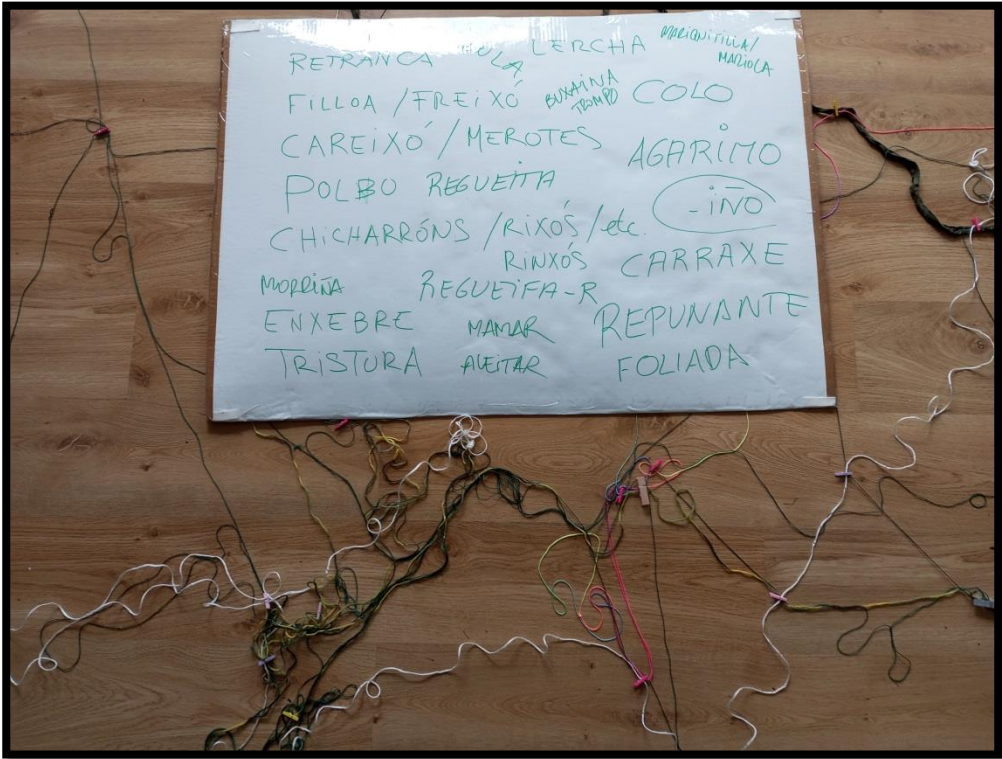 RETRANCA LERCHA MARIQUITILLA/
MARIOLA
FILLOA / FREIXÓ BUXAINA COLO
TROMPO
CAREIXÓ / MEROTES AGARIMO
POLBO REGUEITA -IÑO
CHICHARRÓNS / RIXÓS / etc.
RINXÓS CARRAXE
MORRIÑA REGUEIFA-R
ENXEBRE MAMAR REPUNANTE
TRISTURA ALEITAR FOLIADA